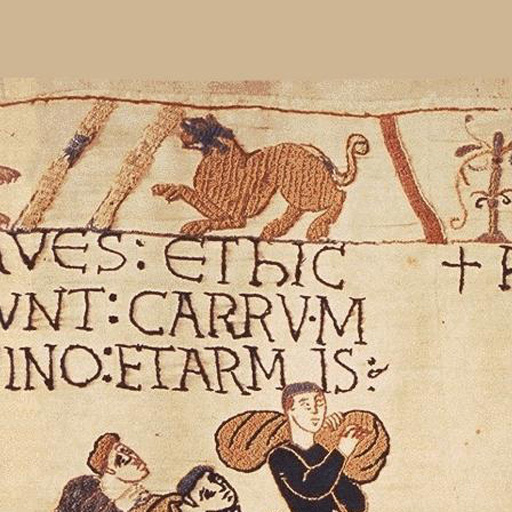 AVES: EThIC
VNT: CARRVM
INO: ETARMIS: